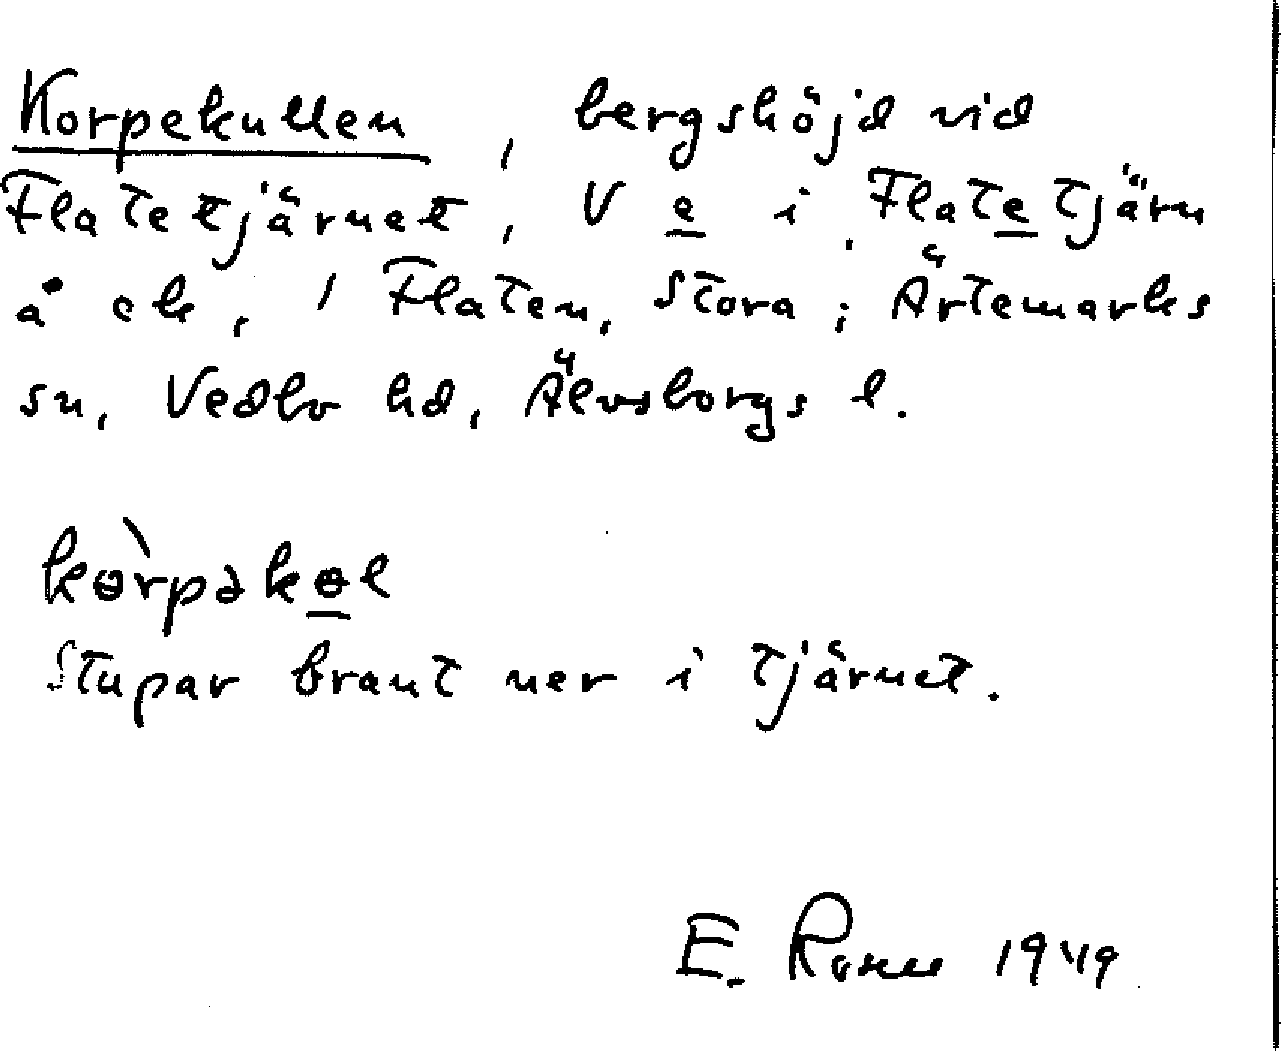 Korpekullen, bergshöjd vid
Flatetjärnet, V e i Flatetjärn
å ek, / Flaten, Stora; Ärtemarks
sn, Vedbo hd, Älvsborgs l.
kɵ̀rpəkɵl
Stupar brant ner i tjärnet.
E. 1949